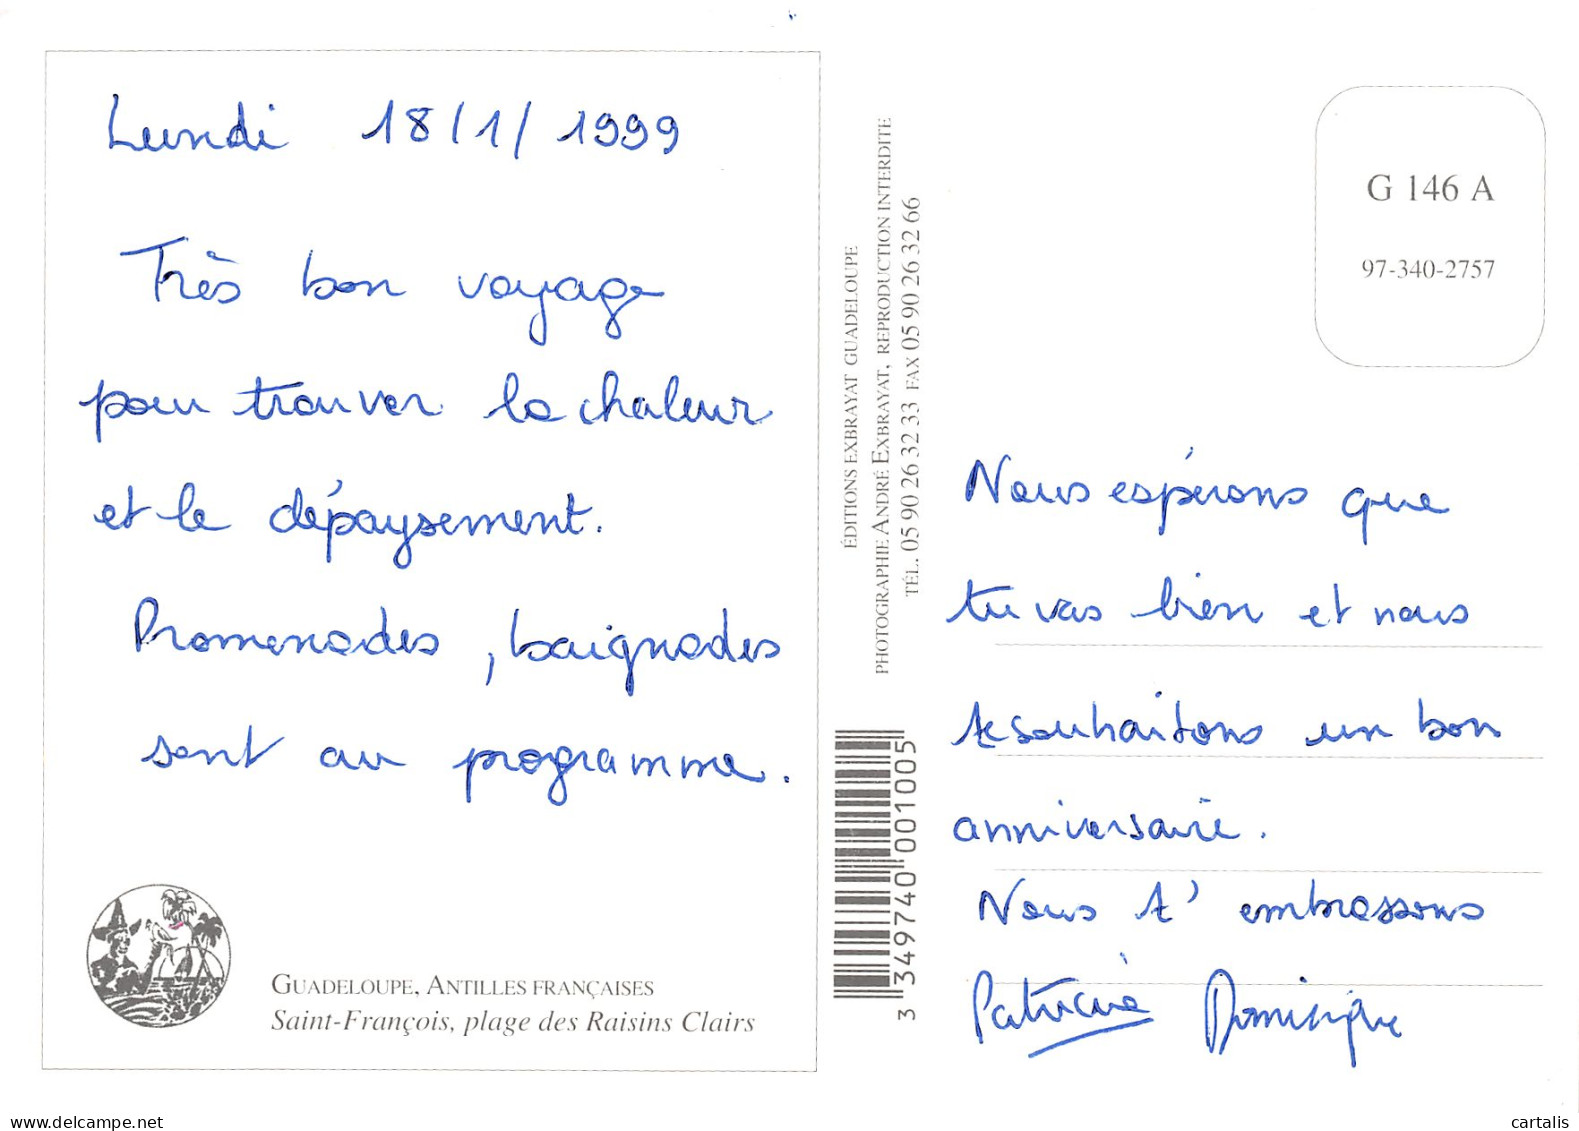 Lundi 18/1/1999
Très bon voyage
pour trouver la chaleur
et le dépaysement.
Promenades, baignades
sont au programme.
GUADELOUPE, ANTILLES FRANÇAISES
Saint-François, plage des Raisins Clairs
ÉDITIONS EXBRAYAT GUADELOUPE
PHOTOGRAPHIE ANDRÉ EXBRAYAT, REPRODUCTION INTERDITE
TÉL. 05 90 26 32 33 FAX 05 90 26 32 66
3 349740 001005
G 146 A
97-340-2757
Nous espérons que
tu vas bien et nous
te souhaitons un bon
anniversaire.
Nous t'embrassons
Patricia Dominique
delcampe.net
cartalis